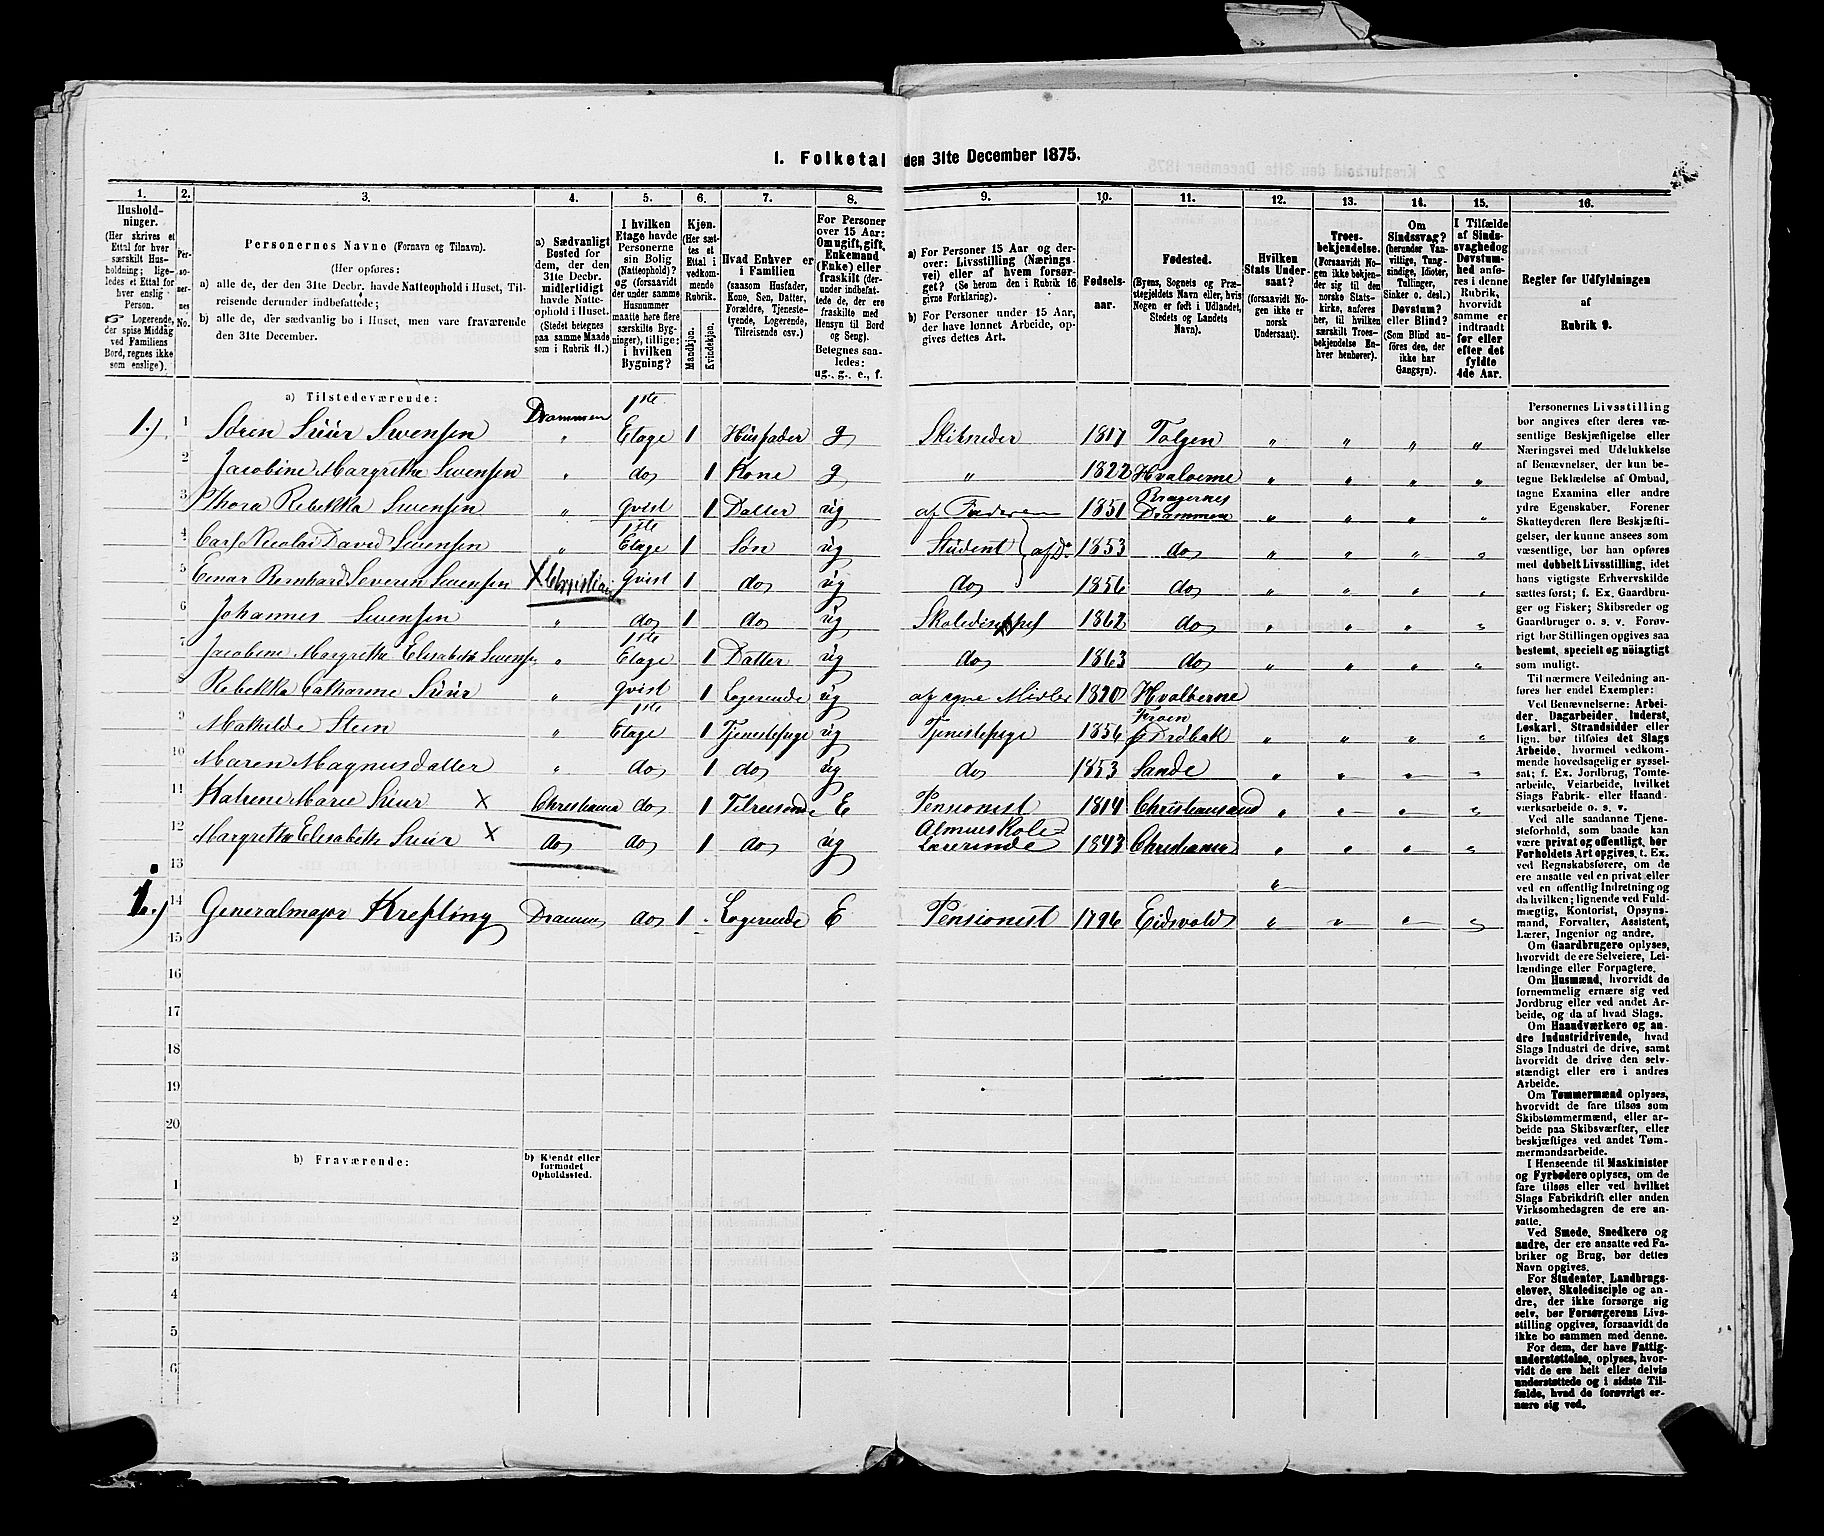 1. Folketal den 31te December 1875.
1.
Hushold-
ninger.
(Her skrives et
Ettal for hver
særskilt Hus-
holdning; lige-
ledes et Ettal for
hver enslig
Person.
☞ Logerende,
der spise Middag
ved Familiens
Bord, regnes ikke
som enslige).
2.
Per-
so-
ner-
nes
No.
3.
Personernes Navne (Fornavn og Tilnavn).
(Her opføres:
a) alle de, der den 31te Decbr. havde Natteophold i Huset, Til-
reisende derunder indbefattede;
b) alle de, der sædvanlig bo i Huset, men vare fraværende
den 31te December.
4.
a) Sædvanligt
Bosted for
dem, der den
31te Decbr.
midlertidigt
havde Natte-
ophold i Huset.
(Stedet betegnes
paa samme Maade
som i Rubrik 11.)
5.
I hvilken
Etage havde
Personerne
sin Bolig
(Natteophold)?
og (forsaavidt
der under samme
Husnummer
maatte høre flere
særskilte Byg-
ninger), tillige:
i hvilken
Bygning?
6.
Kjøn.
(Her sæt-
tes et
Ettal i
vedkom-
mende
Rubrik.
Mandkjøn.
Kvindekjøn.
7.
Hvad Enhver er
i Familien
(saasom Husfader,
Kone, Søn, Datter,
Forældre, Tjeneste-
tyende, Logerende,
Tilreisende osv.)
8.
For Personer
over 15 Aar:
Om ugift, gift,
Enkemand
(Enke) eller
fraskilt (der-
under indbefat-
tede de, der ere
fraskilte med
Hensyn til Bord
og Seng).
Betegnes saa-
ledes:
ug., g., e., f.
9.
a) For Personer 15 Aar og der-
over: Livsstilling (Nærings-
vei) eller af hvem forsør-
get? (Se herom den i Rubrik 16
givne Forklaring).
b) For Personer under 15 Aar,
der have lønnet Arbeide, op-
gives dettes Art.
10.
Fødsels-
aar.
11.
Fødested.
(Byens, Sognets og Præ-
stegjeldets Navn eller, hvis
Nogen er født i Udlandet,
Stedets og Landets
Navn).
12.
Hvilken
Stats Under-
saat?
(forsaavidt No-
gen ikke er
norsk
Undersaat).
13.
Troes-
bekjendelse.
(Forsaavidt No-
gen ikke bekjen-
der sig til den
norske Stats-
kirke, anføres
her, til hvilken
særskilt Troes-
bekjendelse En-
hver henhører).
14.
Om
Sindssvag?
(herunder Van-
vittige, Tung-
sindige, Idioter,
Tullinger,
Sinker o. desl.)
Døvstum?
eller Blind?
(Som Blind an-
føres den, der
ikke har
Gangsyn).
15.
I Tilfælde
af Sinds-
svaghed og
Døvstum-
hed anfø-
res i denne
Rubrik,
hvorvidt
samme er
indtraadt
før eller
efter det
fyldte
4de Aar.
16.
Regler for Udfyldningen
af
Rubrik 9.
a) Tilstedeværende:
1.) 1 Søren Suur Svensen Drammen " 1ste Etage 1 Husfader g Skibsreder 1817 Tolgen " " " "
2 Jacobine Margrethe Svensen " do 1 Kone g " 1822 Hvaløerne " " " "
3 Thora Rebekka Svensen " Qvist 1 Datter ug af Faderen 1851 Bragernes Drammen " " " "
4 Carl Nicolai David Svensen " 1ste Etage 1 Søn ug Student } af Do 1853 do " " " "
5 Einar Bernhard Severin Svensen X Christiania Qvist 1 do ug do 1856 do " " " "
6 Johannes Svensen " do 1 do ug Skoledisipel 1862 do " " " "
7 Jacobine Margrethe Elisabeth Svensen " 1ste Etage 1 Datter ug do 1863 do " " " "
8 Rebekka Catharine Suur " Qvist 1 Logerende ug af egne Midler 1820 Hvaløerne " " " "
9 Mathilde Steen " 1ste Etage 1 Tjenestepige ug Tjenestepige 1856 Froen p Drøbak " " " "
10 Maren Magnusdatter " do 1 do ug do 1853 Sande " " " "
11 Katrine Marie Suur X Christiania do 1 Tilreisende E Pensionist 1814 Christiansand " " " "
12 Margrethe Elisabeth Suur X do do 1 do ug Almueskole- Lærerinde 1843 Christiania " " " "
13 "
1.) 14 Generalmajor Krefting Drammen do 1 - Logerende E Pensionist 1796 Eidsvold " " " "
15
16
17
18
19
20
b) Fraværende:
b) Kjendt eller
formodet
Opholdssted.
1
2
3
4
5
6
Personernes Livsstilling
bør angives efter deres væ-
sentlige Beskjæftigelse eller
Næringsvei med Udelukkelse
af Benævnelser, der kun be-
tegne Beklædelse af Ombud,
tagne Examina eller andre
ydre Egenskaber. Forener
Skatteyderen flere Beskjæfti-
gelser, der kunne ansees som
væsentlige, bør han opføres
med dobbelt Livsstilling, idet
hans vigtigste Erhvervskilde
sættes først; f. Ex. Gaardbru-
ger og Fisker; Skibsreder og
Gaardbruger o. s. v. Forøv-
rigt bør Stillingen opgives saa
bestemt, specielt og nøiagtigt
som muligt.
Til nærmere Veiledning an-
føres her endel Exempler:
Ved Benævnelserne: Arbei-
der, Dagarbeider, Inderst,
Løskarl, Strandsidder eller
lign. bør tilføies det Slags
Arbeide, hvormed vedkom-
mende hovedsagelig er syssel-
sat; f. Ex. Jordbrug, Tomte-
arbeide, Veiarbeide, hvilket
Slags Fabrik- eller Haand-
værksarbeide o. s. v.
Ved alle saadanne Tjene-
steforhold, som baade kan
være privat og offentligt, bør
Forholdets Art opgives, t. Ex.
ved Regnskabsførere, om de
ere ansatte ved en privat eller
ved en offentlig Indretning og
da hvilken; lignende ved Fuld-
mægtig, Kontorist, Opsyns-
mand, Forvalter, Assistent,
Lærer, Ingeniør og andre.
Om Gaardbrugere oplyses,
hvorvidt de ere Selveiere, Lei-
lændinge eller Forpagtere.
Om Husmænd, hvorvidt de
fornemmelig ernære sig ved
Jordbrug eller ved andet Ar-
beide, og da af hvad Slags.
Om Haandværkere og an-
dre Industridrivende, hvad
Slags Industri de drive, samt
hvorvidt de drive den selv-
stændigt eller ere i andres
Arbeide.
Om Tømmermænd oplyses,
hvorvidt de fare tilsøs som
Skibstømmermænd, eller ar-
beide paa Skibsværfter, eller
beskjæftiges ved andet Tøm-
mermandsarbeide.
I Henseende til Maskinister
og Fyrbødere oplyses, om de
fare tilsøs eller ved hvilket
Slags Fabrikdrift eller anden
Virksomhedsgren de ere an-
satte.
Ved Smede, Snedkere og
andre, der ere ansatte ved Fa-
briker og Brug, bør dettes
Navn opgives.
For Studenter, Landbrugs-
elever, Skoledisciple og an-
dre, der ikke forsørge sig
selv, bør Forsørgerens Livs-
stilling opgives, forsaavidt de
ikke bo sammen med denne.
For dem, der have Fattig-
understøttelse, oplyses, hvor-
vidt de ere helt eller delvis
understøttede og i sidste Til-
fælde, hvad de forøvrigt er-
nære sig ved.